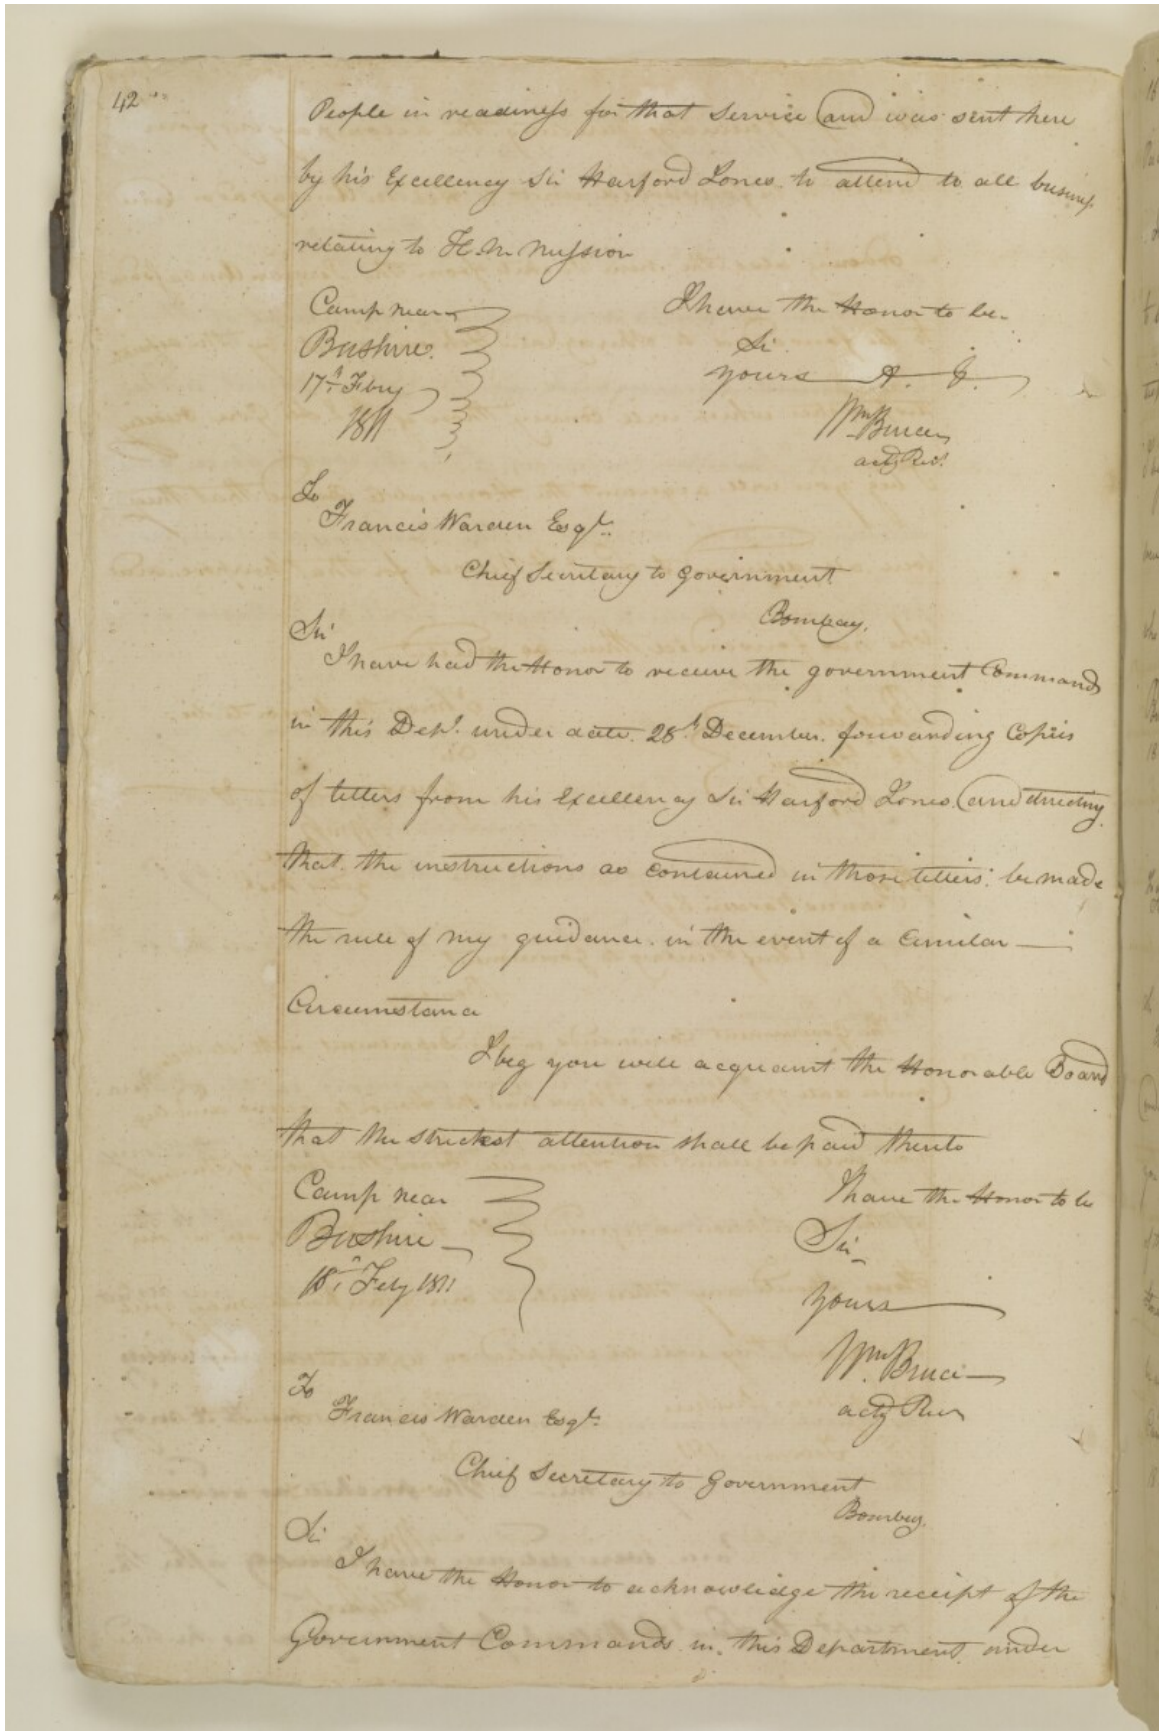 42
People in readiness for that Service and was sent here
by his Excellency Sir Harford Jones to attend to all business
relating to H. M. Mission
Camp near
Bushire.
17th Feby
1811
I have the Honor to be
Sir
yours &. &.
Wm Bruce
actg Rest.
To
Francis Warden Esqr.
Chief Secretary to Government
Bombay.
Sir
I have had the Honor to receive the government Commands
in this Dept. under date 28th December. forwarding Copies
of letters from his Excellency Sir Harford Jones and directing
that the instructions as contained in those letters be made
the rule of my guidance in the event of a Similar
Circumstance
I beg you will acquaint the Honorable Board
that the strictest attention shall be paid thereto
Camp near
Bushire
18th Feby 1811
I have the Honor to be
Sir
yours
Wm. Bruce
actg Rest
To
Francis Warden Esqr.
Chief Secretary to Government
Bombay.
Sir
I have the Honor to acknowledge the receipt of the
Government Commands in this Department under